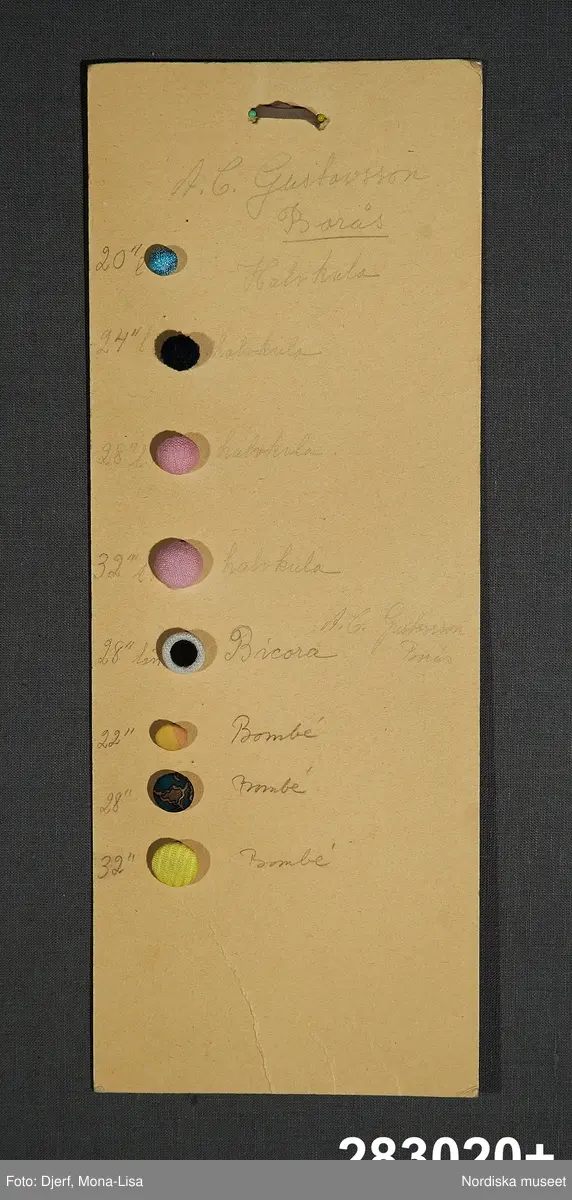 A. C. Gustavsson
Borås
20"
Halvkula
24" halvkula
28" halvkula
32" halvkula
A. C. Gustavsson
28" lin Bicora Borås
22" Bombé
28" Bombé
32" Bombé
283020+
Foto: Djerf, Mona-Lisa Nordiska museet